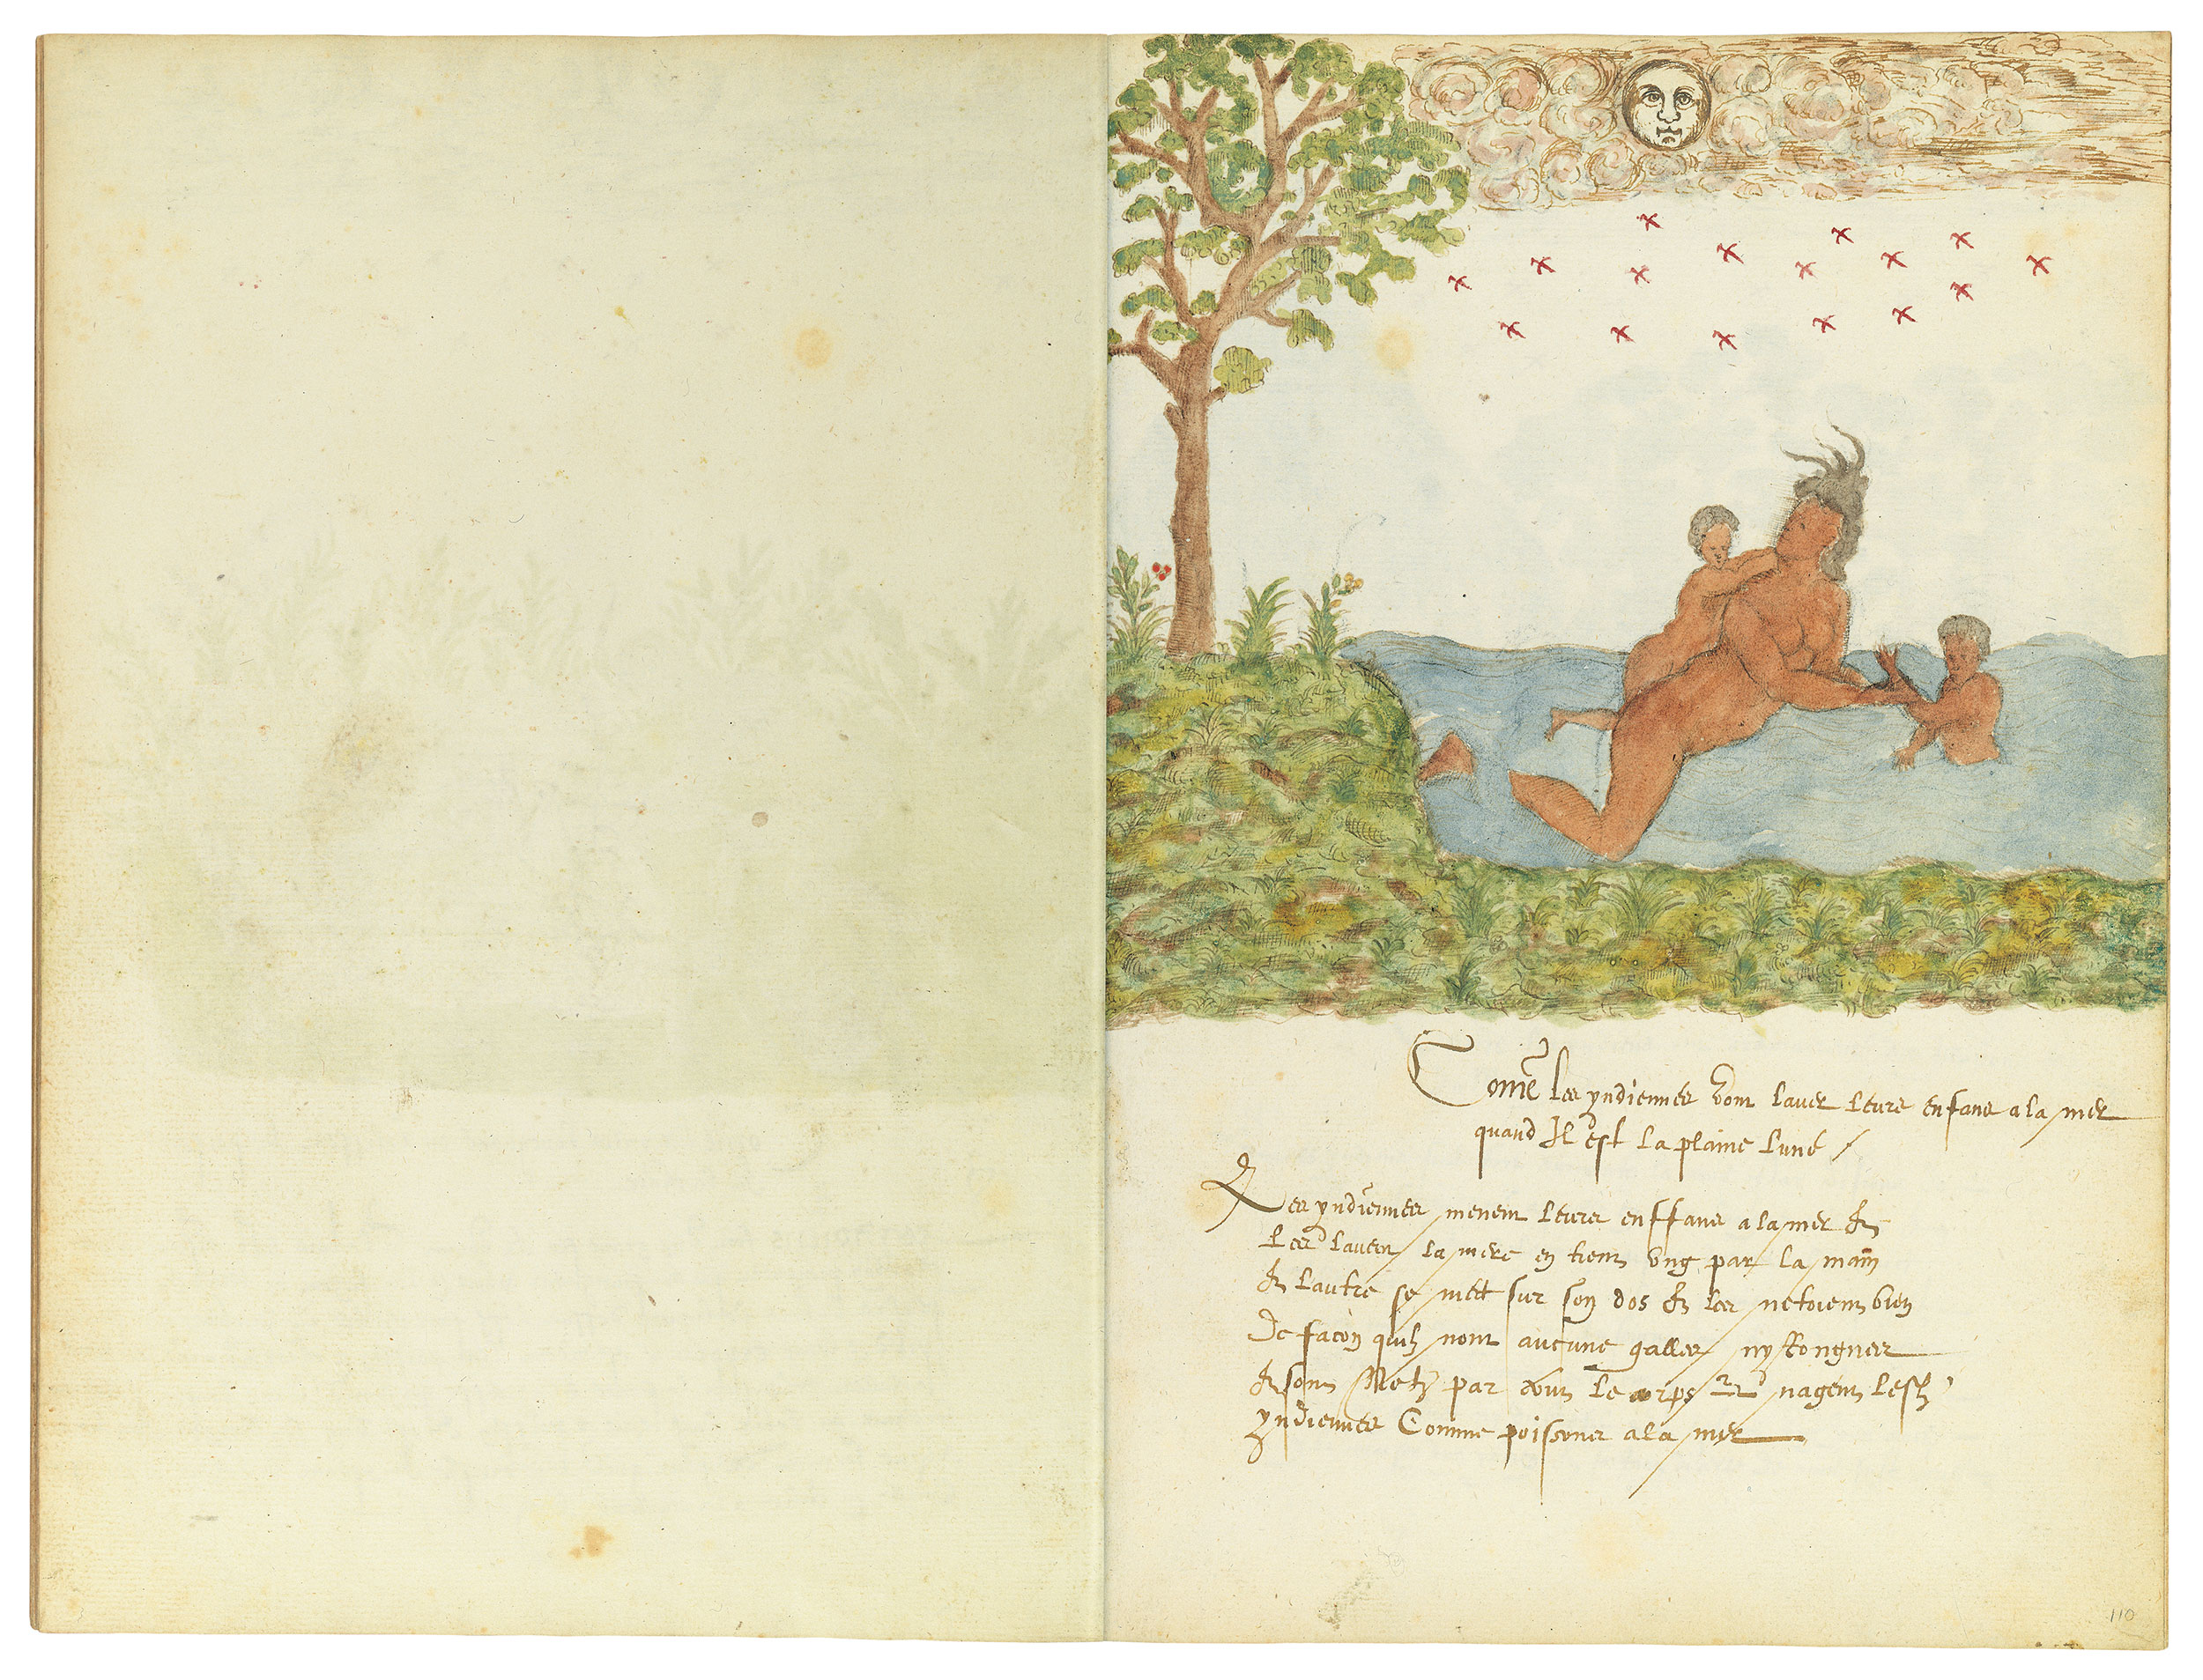 Comẽ les yndiennes vont laver leurs enfans a la mer
quand Il est la plaine lune /
Les yndiennes menent leurs enffans a la mer et
les lavent la mere en tient ung par la main
et lautre se mett sur son dos et les netoient bien
De facon quilz nont aucune galles ny Rongnes
et sont Netz par tout le corps et nagent lesd
yndiennes Comme poissons a la mer
110